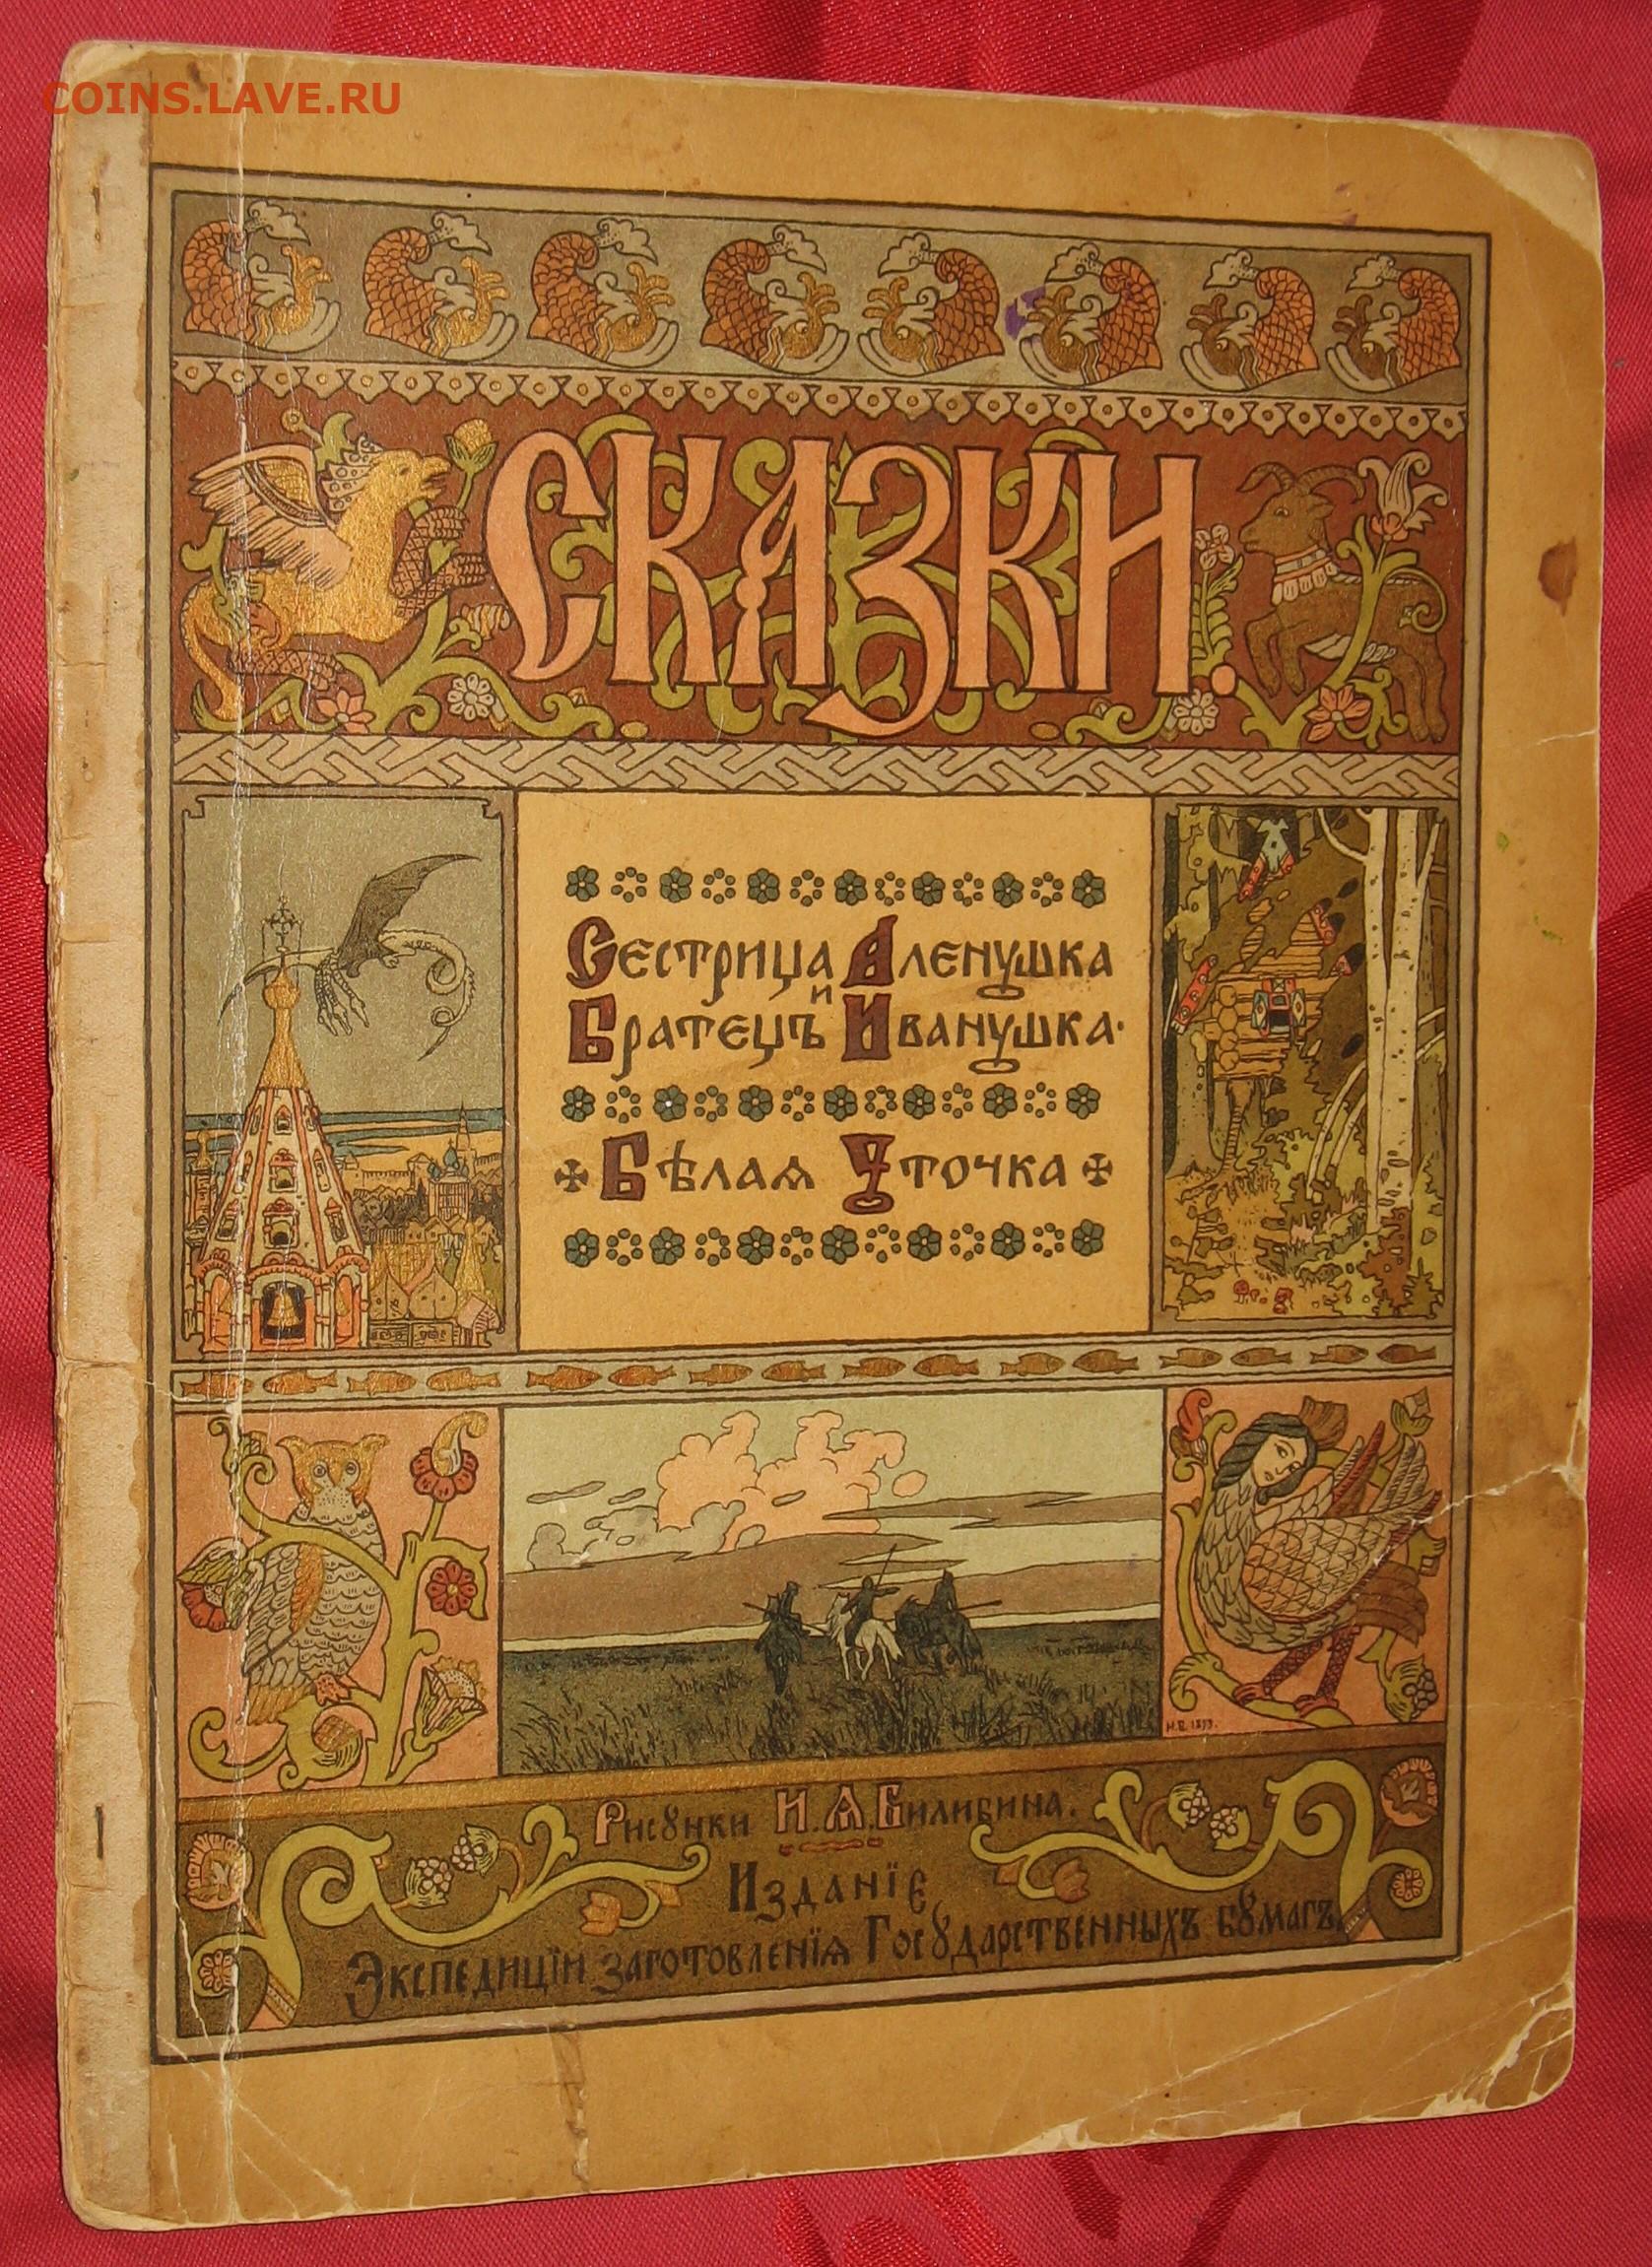 COINS.LAVE.RU
СКАЗКИ.
Сестрица Аленушка
и
Братецъ Иванушка.
Бѣлая Уточка
И.Б. 1899.
Рисунки И.Я.Билибина.
Изданіе
Экспедиціи заготовленія Государственныхъ бумагъ